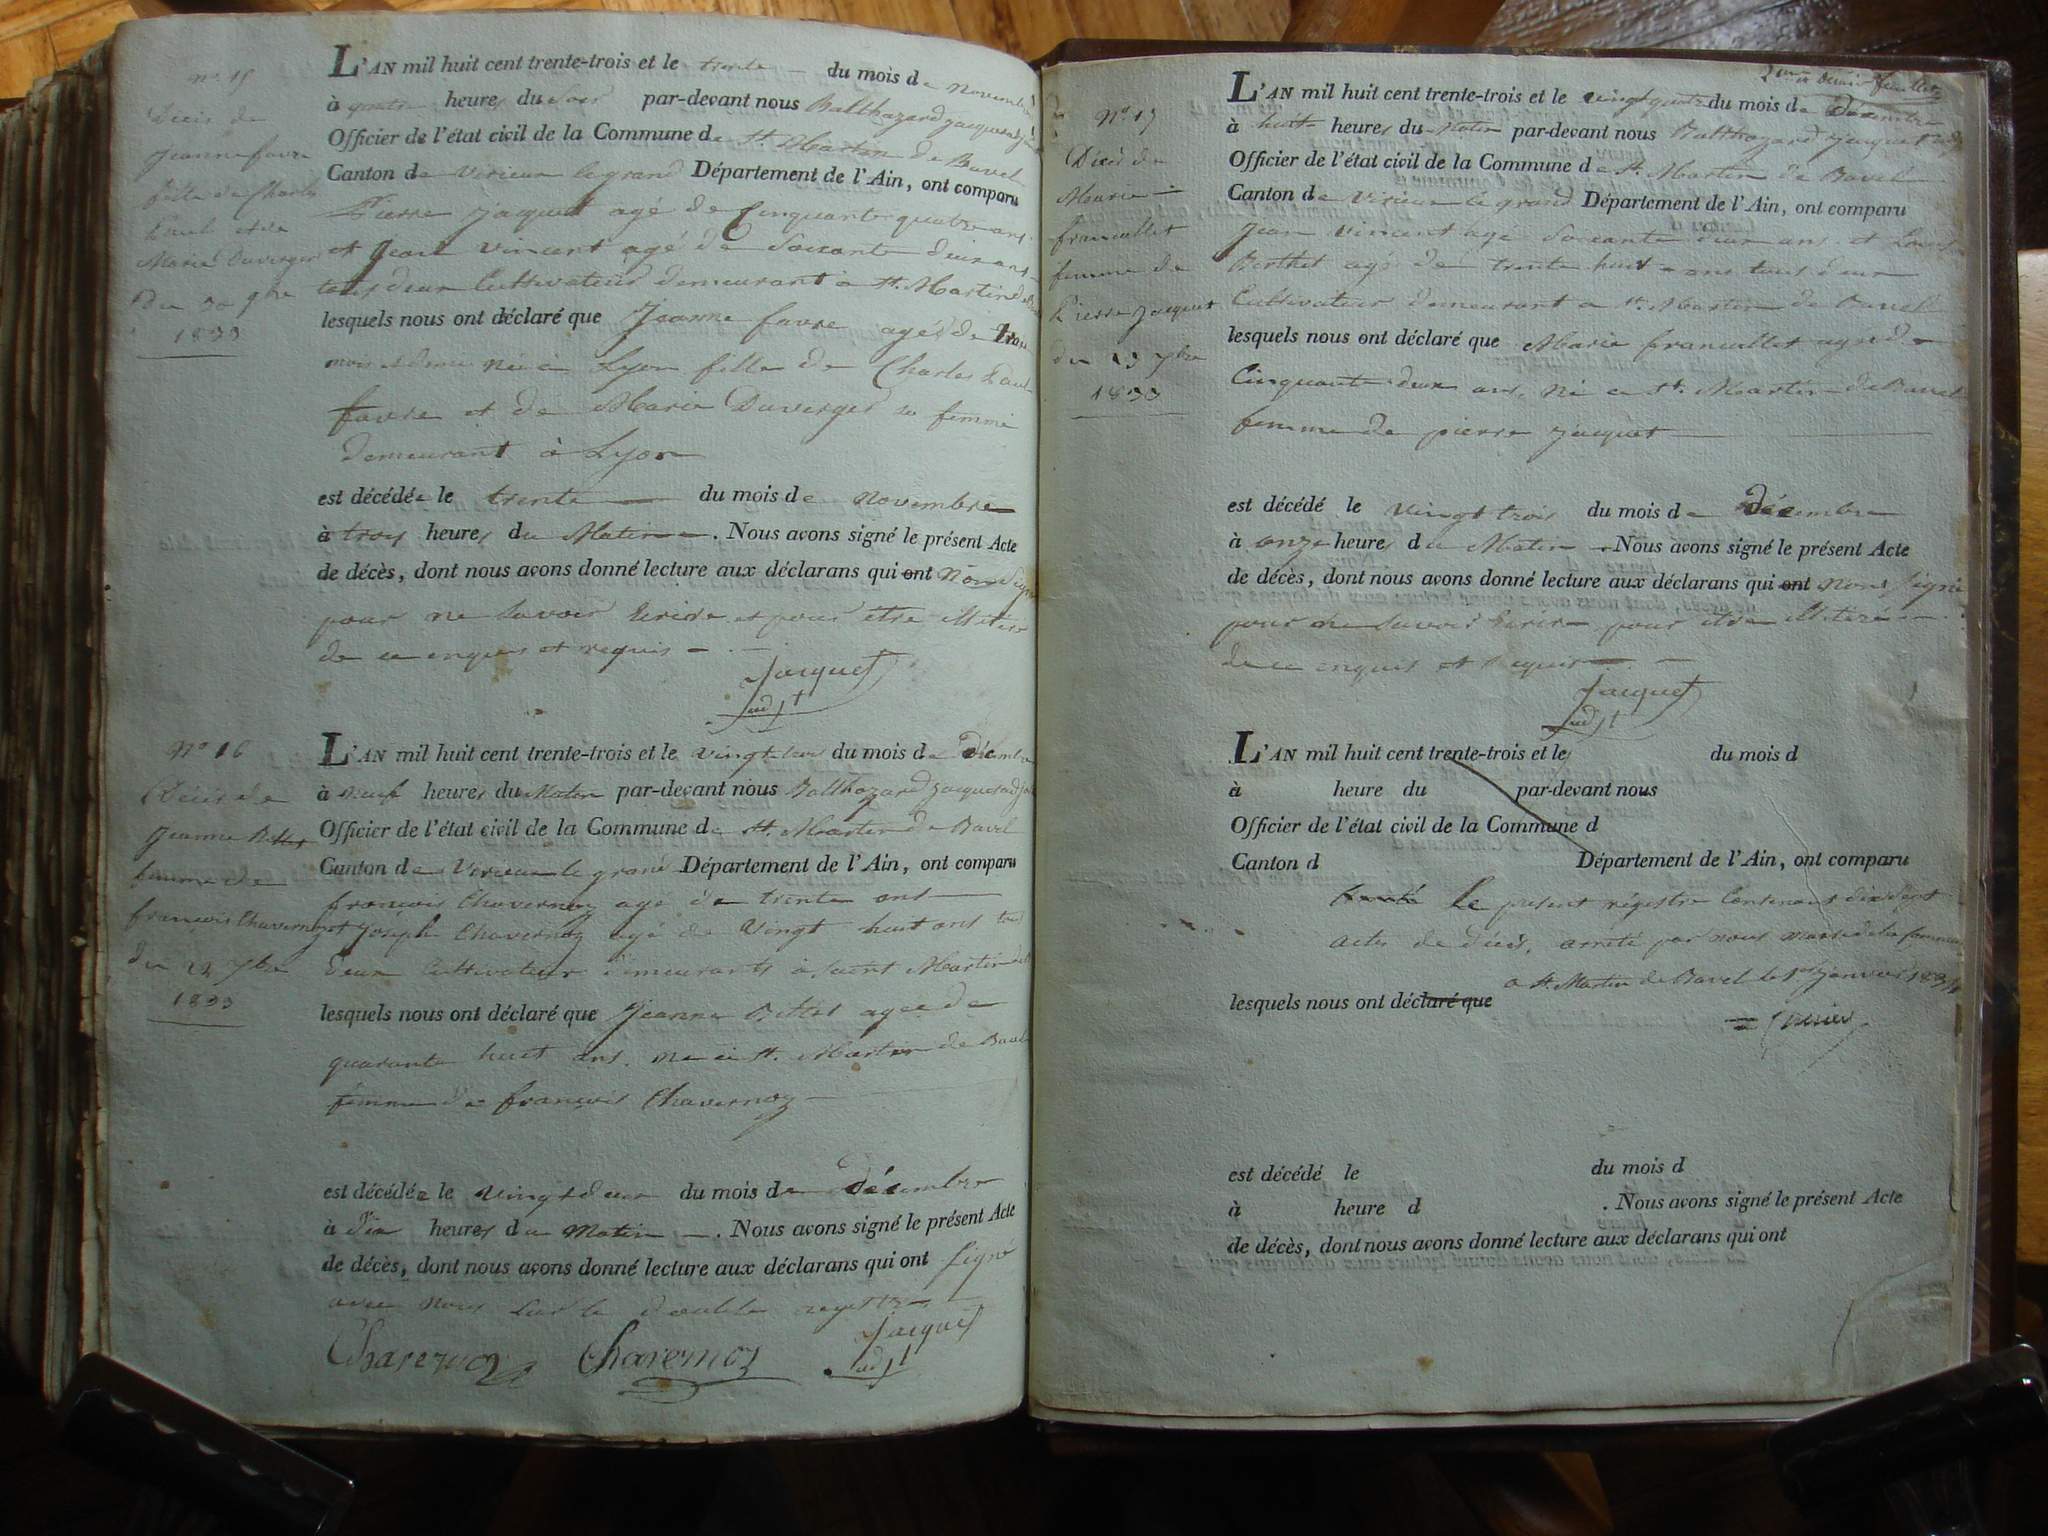 n° 15
Décès de
jeanne favre
fille de Charles
Paul et de
Marie Duverger
du 30 9bre
1833
L'AN mil huit cent trente-trois et le trente du mois de novembre
à quatre heures du Soir par-devant nous Balthazard jacquet adjoint
Officier de l'état civil de la Commune de St. Martin de Bavel
Canton de Virieu le grand Département de l'Ain, ont comparu
Pierre jaquet agé de Cinquante quatre ans
et jean vincent agé de Soixante deux ans
tous deux Cultivateurs demeurant à St. Martin de
lesquels nous ont déclaré que Jeanne favre agée de trois
mois et demi née à Lyon fille de Charles Paul
favre et de Marie Duverger sa femme
demeurant à Lyon
est décédée le trente du mois de novembre
à trois heures du Matin. Nous avons signé le présent Acte
de décès, dont nous avons donné lecture aux déclarans qui ont Non Signé
pour ne Savoir Ecrire et pour être illitéré
de ce enquis et requis
Jacquet
adjt
N° 16
Décès de
jeanne Bettet
femme de
françois Chavernoz
du 22 Xbre
1833
L'AN mil huit cent trente-trois et le vingt du mois de Décembre
à neuf heures du Matin par-devant nous Balthazard jacquet adjoint
Officier de l'état civil de la Commune de St. Martin de Bavel
Canton de Virieu le grand Département de l'Ain, ont comparu
françois Chavernoz agé de trente ans
et Joseph Chavernoz agé de Vingt huit ans tous
deux Cultivateur demeurants à Saint Martin
lesquels nous ont déclaré que Jeanne Bettet agée de
quarante huit ans. née à St. Martin de Bavel
femme de françois Chavernoz
est décédée le vingt deux du mois de décembre
à dix heures du Matin. Nous avons signé le présent Acte
de décès, dont nous avons donné lecture aux déclarans qui ont Signé
avec nous Sur le double registre
Chavernoz Chavernoz Jacquet
adjt
2eme et demi feuillet
N° 17
Décès de
Marie
francillet
femme de
Pierre jacquet
du 23 Xbre
1833
L'AN mil huit cent trente-trois et le vingt quatre du mois de Décembre
à huit heures du Matin par-devant nous Balthazard jacquet adjt
Officier de l'état civil de la Commune de St. Martin de Bavel
Canton de Virieu le grand Département de l'Ain, ont comparu
jean vincent agé Soixante deux ans et Louis
Berthet agé de trente huit ans tous deux
Cultivateur demeurant à St. Martin de Bavel
lesquels nous ont déclaré que Marie francillet agée de
Cinquante deux ans, né à St. Martin de Bavel
femme de pierre jacquet
est décédé le vingt trois du mois de Décembre
à onze heures du Matin. Nous avons signé le présent Acte
de décès, dont nous avons donné lecture aux déclarans qui ont non Signé
pour ne Savoir Ecrire pour être illitéré
de ce enquis et Requis
Jacquet
adjt
L'AN mil huit cent trente-trois et le du mois d
à heure du par-devant nous
Officier de l'état civil de la Commune d
Canton d Département de l'Ain, ont comparu
Le présent régistre Contenant dix Sept
actes de décès, arrêté par nous maire de la Commune
à St. Martin de Bavel le 1er janvier 1834
lesquels nous ont déclaré que
est décédé le du mois d
à heure d . Nous avons signé le présent Acte
de décès, dont nous avons donné lecture aux déclarans qui ont